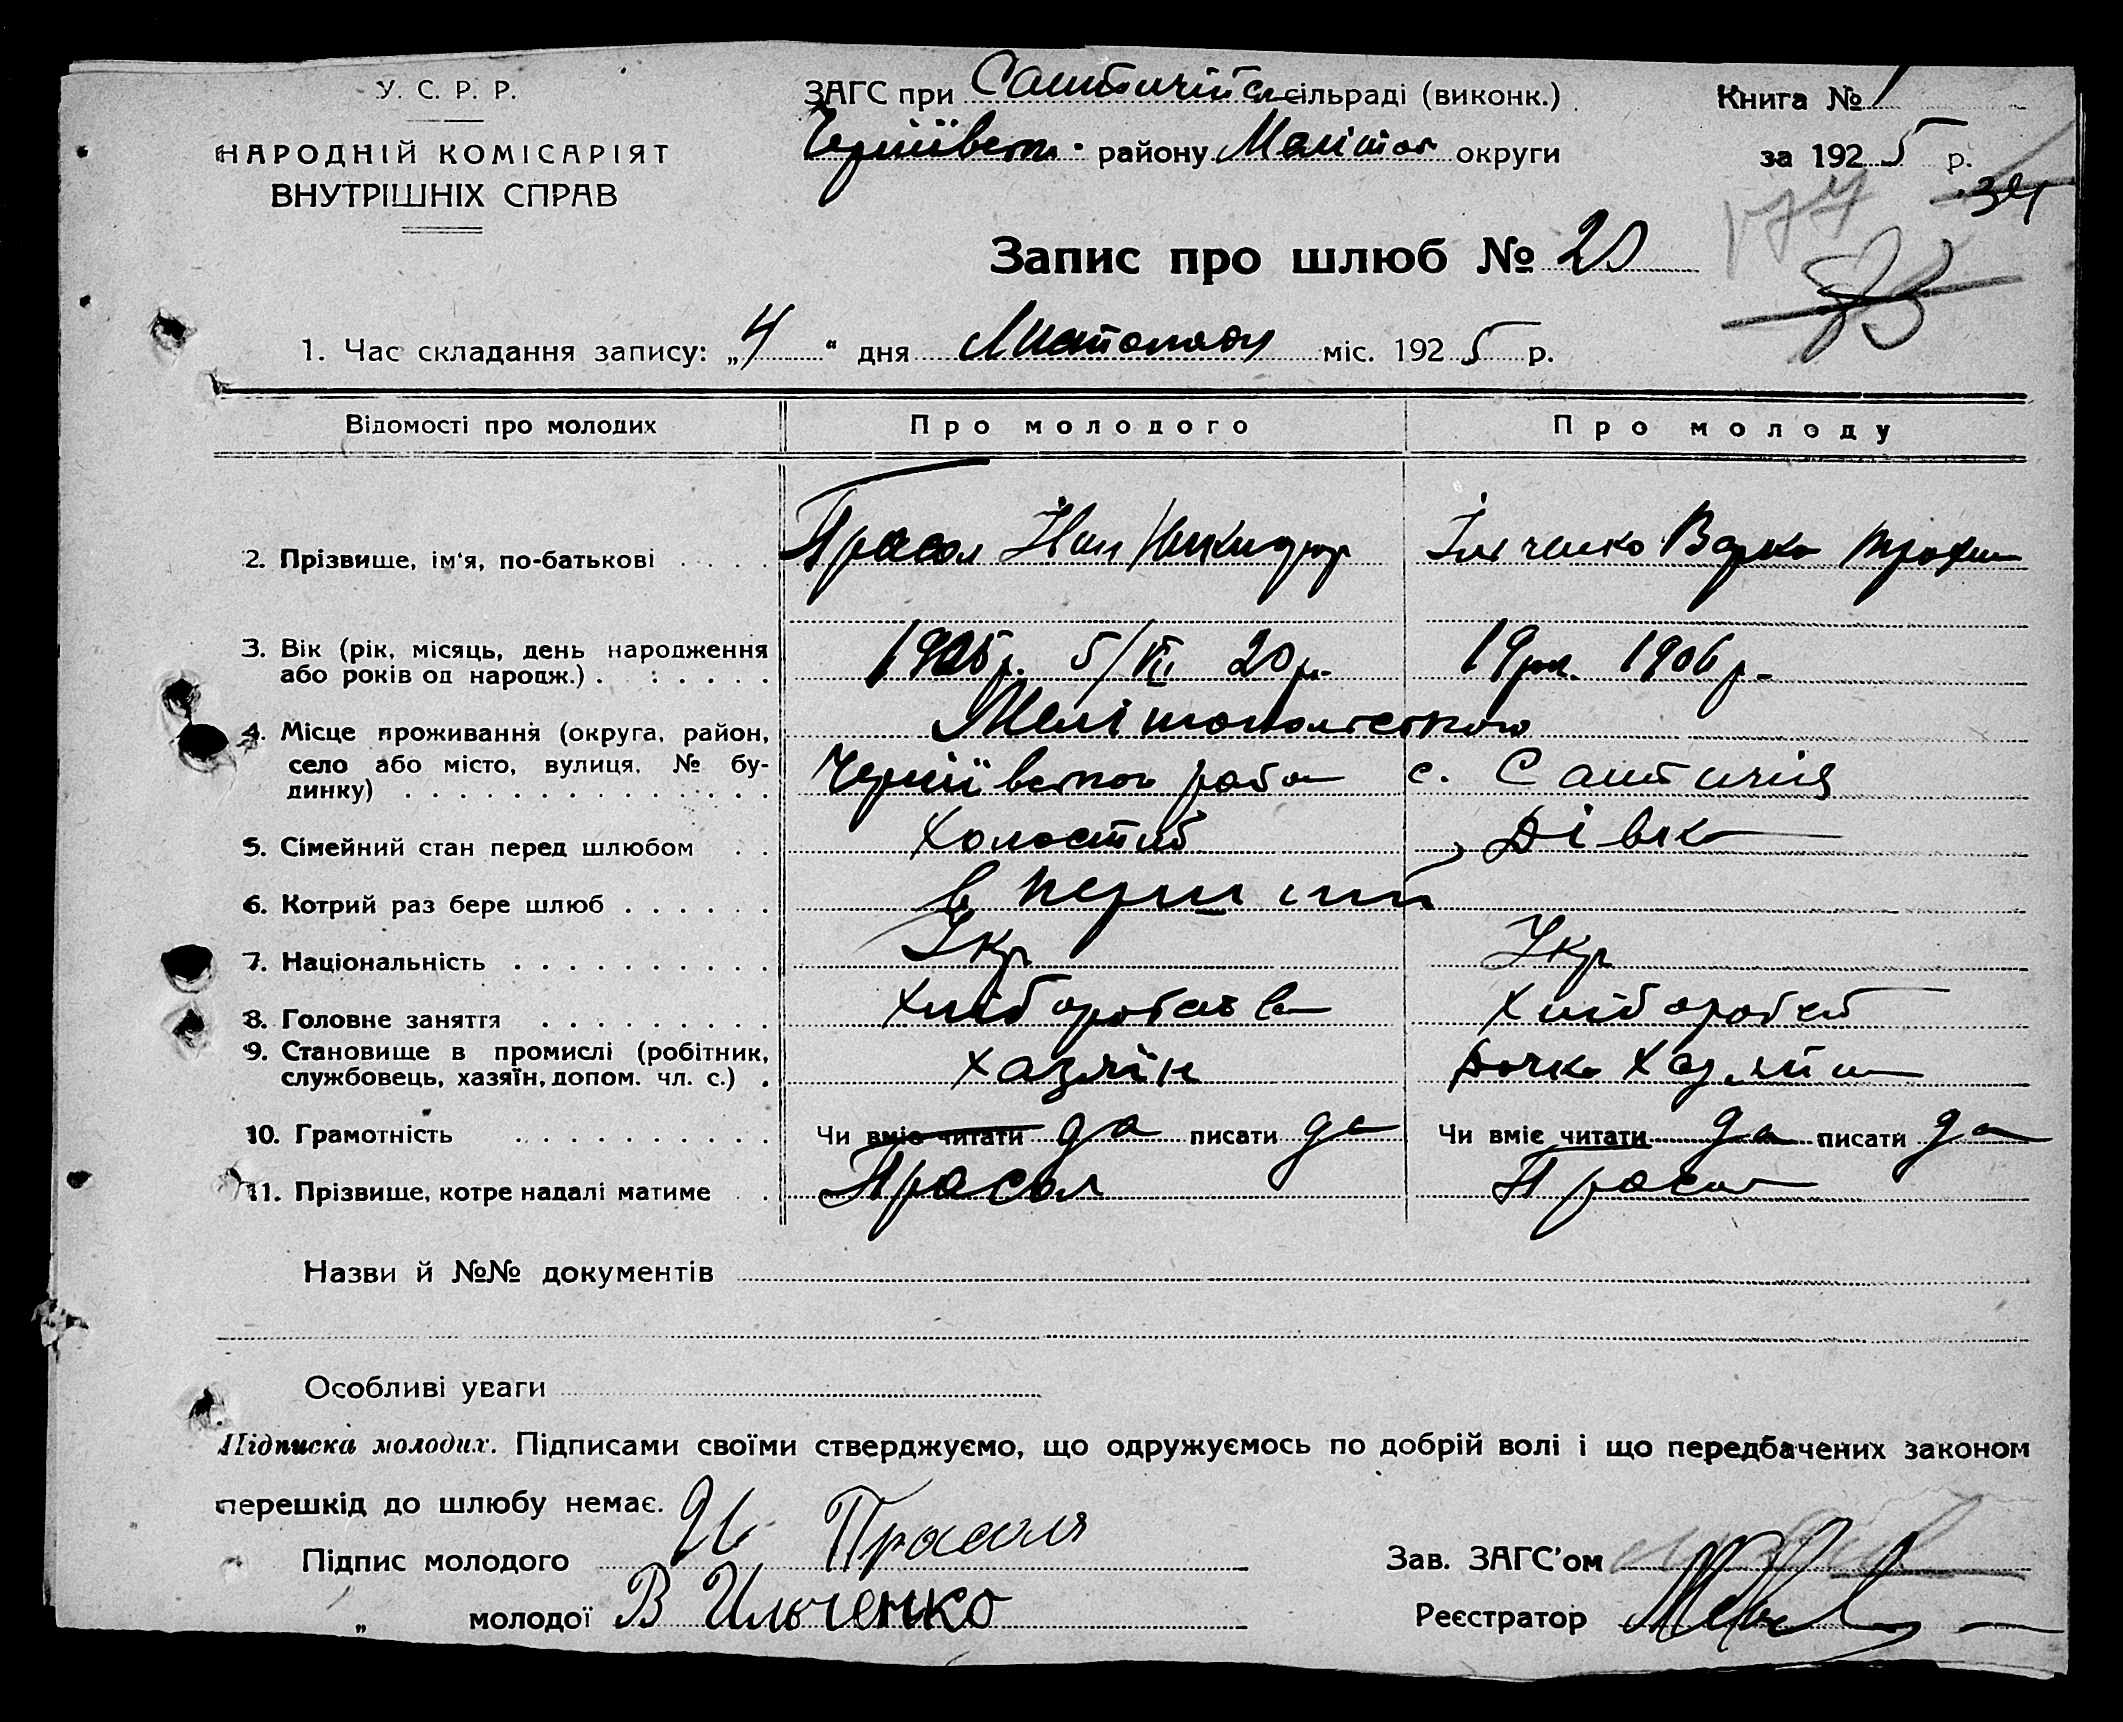 У. С. Р. Р.
НАРОДНІЙ КОМІСАРІЯТ
ВНУТРІШНІХ СПРАВ
ЗАГС при сільраді (виконк.)
району Мелітоп округи
Книга № 1
за 1925 р.
34
174
Запис про шлюб № 20
1. Час складання запису: „4“ дня Листопаду міс. 1925 р.
Відомості про молодих Про молодого Про молоду
2. Прізвище, ім'я, по-батькові Прасол Іван Никифор Ільченко Варка Трохим
3. Вік (рік, місяць, день народження
або років од народж.) 1905р. 5/VII 20 р. 19 рок. 1906 р.
4. Місце проживання (округа, район, Мелітопольського
село або місто, вулиця, № бу- с.
динку)
5. Сімейний стан перед шлюбом Холостий Дівка
6. Котрий раз бере шлюб в перший
7. Національність Укр Укр
8. Головне заняття Хлібороб
9. Становище в промислі (робітник,
службовець, хазяїн, допом. чл. с.) хазяїн Дочка Хазяїна
10. Грамотність Чи вміє читати да писати да Чи вміє читати да писати да
11. Прізвище, котре надалі матиме Прасол Прасол
Назви й №№ документів
Особливі уваги
Підписка молодих. Підписами своїми стверджуємо, що одружуємось по добрій волі і що передбачених законом
перешкід до шлюбу немає.
Підпис молодого И Прасоля
„ молодої В Ильченко
Зав. ЗАГС'ом
Реєстратор